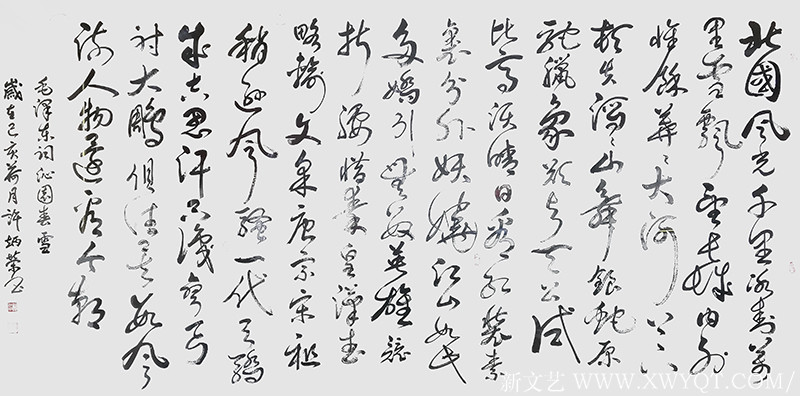 北國风光千里冰封萬
里雪飄望長城内外
惟餘莽〻大河上下
頓失滔〻山舞銀蛇原
馳臘象欲与天公试
比高须晴日看红裝素
裹分外妖嬈江山如此
多嬌引無数英雄競
折腰惜秦皇漢武
略輸文采唐宗宋祖
稍逊风騷一代天驕
成吉思汗只識彎弓
射大鵰俱往矣数风
流人物還看今朝
毛澤东词沁園春雪
歲在己亥荷月許炳榮书
新文艺 WWW.XWYQT.COM/